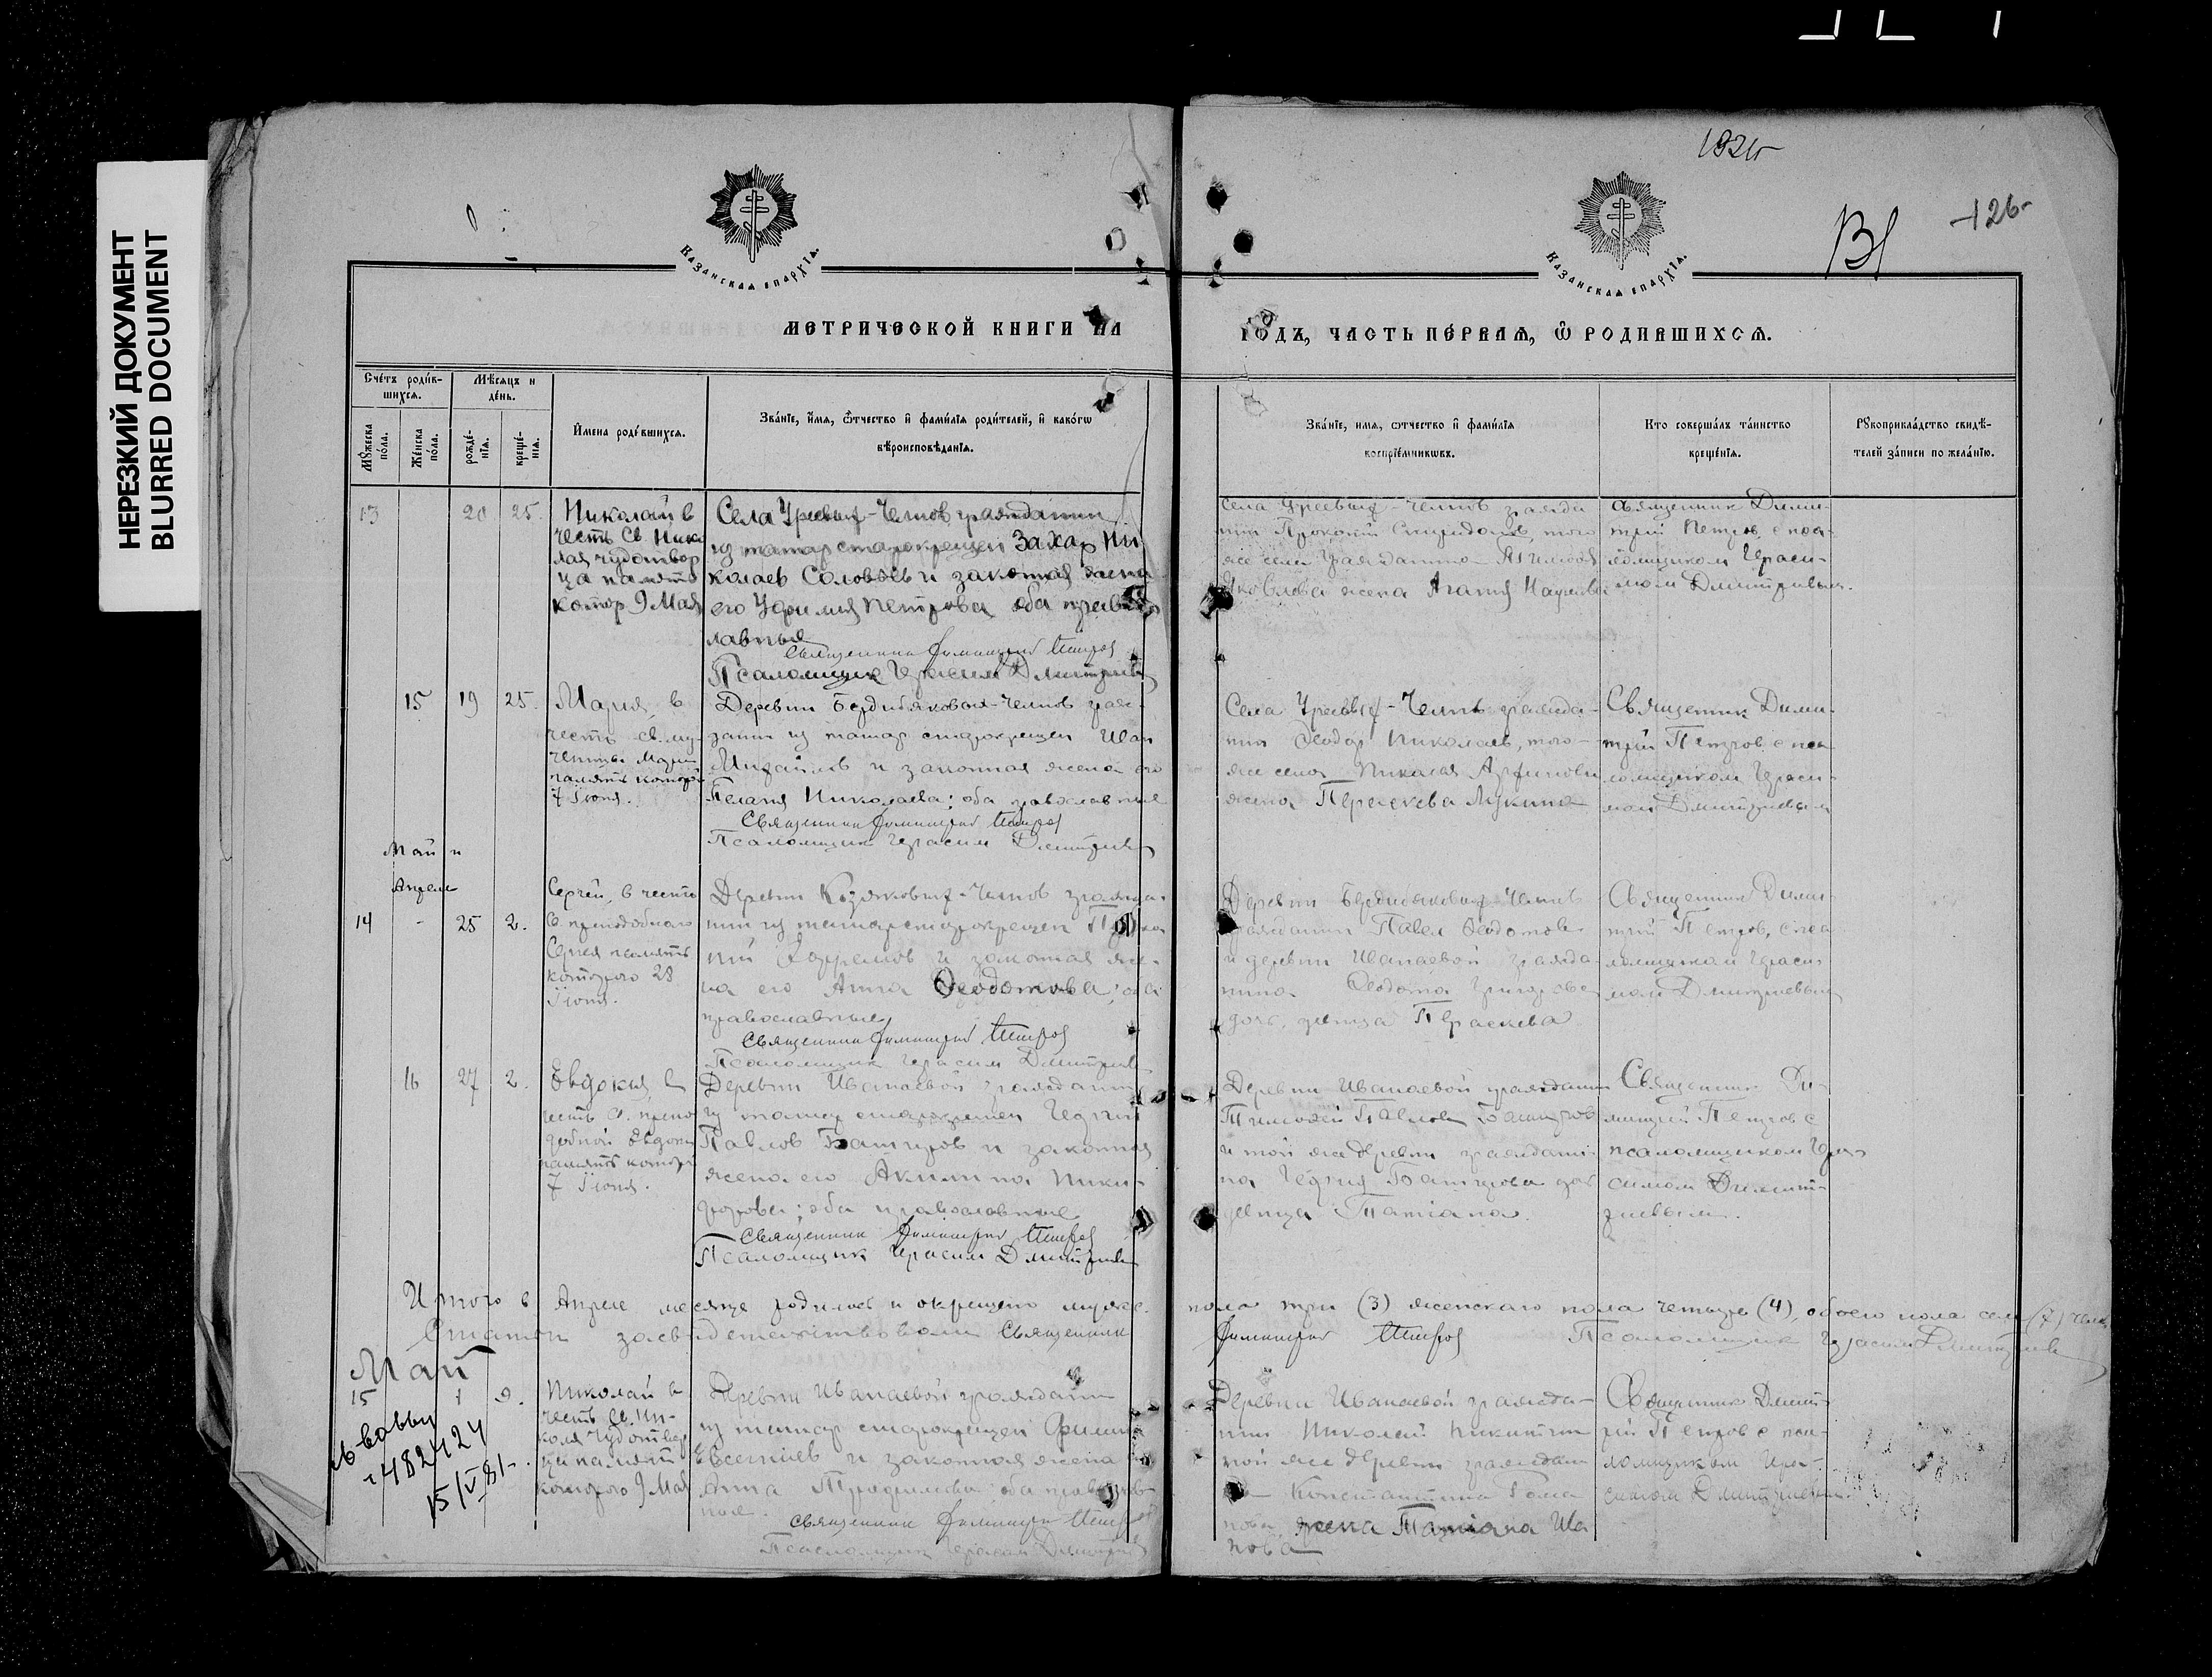 НЕРЕЗКИЙ ДОКУМЕНТ
BLURRED DOCUMENT
126
Казанская епархїя.
Казанская епархїя.
МЕТРИЧЕСКОЙ КНИГИ НА
ГОДЪ, ЧАСТЬ ПЕ́РВАЯ, Ѿ РОДИВШИХСЯ.
Сче́тъ роди́в-
шихся.
Мѣ́сяцъ и
де́нь.
Мꙋ́жеска
по́ла.
Же́нска
по́ла.
рожде́-
нїя.
креще́-
нїя.
И҆мена роди́вшихся.
Зва́нїе, и҆́мя, ѻ҆́тчество и҆ фами́лїя роди́телей, и҆ како́гѡ
вѣроисповѣ́данїя.
Зва́нїе, имя, ѻтчество и҆ фами́лїя
воспрїе́мникѡвъ.
Кто соверша́лъ та́инство
креще́нїя.
Рꙋкоприкла́дство свидѣ́-
телей за́писи по жела́нїю.
13 20 25.
Николай в
честь Св. Нико
лая чудотвор
ца память
котор 9 Мая
Села Уреевых-Челнов гражданин
из татар старокрещен Захар Ни
колаев Соловьев и законная жена
его Ефимия Петрова оба право
лавные
Священник Димитрий Петров
Псаломщик Герасим Дмитриев
Села Уреевых-Челнов гражда
нин Прокопий Спиридонов, того
же села гражданина
Яковлева жена Агапия
Священник Дими-
трий Петров с пса-
ломщиком Гераси-
мом Дмитриевым.
15 19 25.
Мария, в
честь св. му-
ченицы Марии
память которой
7 Июня.
Деревни Бердибяковых-Челнов граж-
данин из татар старокрещен Иван
Михайлов и законная жена его
Пелагия Николаева; оба православные
Священник Димитрий Петров
Псаломщик Герасим Дмитриев
Села Уреевых-Челнов гражда-
нин Феодор Николаев, того-
же села Николая
жена Перескева Лукина
Священник Дими-
трий Петров с пса
ломщиком Гераси-
мом Дмитриевым
Май и
Апрель
14 - 25 2.
Сергий, в честь
св. преподобного
Сергия память
которого 28
Июня.
Деревни Козяковых-Челнов гражда-
нин из татар старокрещен
Ефремов и законная же-
на его Анна Феодотова; оба
православные
Священник Димитрий Петров
Псаломщик Герасим Дмитриев
Деревни Бердибяковых Челнов
гражданин Павел Феодотов
и деревни Иванаевой гражда
нина Феодота Григорьева
дочь, девица Пераскева
Священник Дими-
трий Петров, с пса
ломщиком Гераси-
мом Дмитриевым
16 27 2.
Евдокия, в
честь св. препо
добной Евдокии
память которой
7 Июня.
Деревни Иванаевой гражданин
из татар старокрещен Георгий
Павлов Башкиров и законная
жена его Акилина Ники-
форова; оба православные
Священник Димитрий Петров
Псаломщик Герасим Дмитриев
Деревни Иванаевой гражданин
Тимофей Павлов Башкиров
и той же деревни граждани-
на Георгия Башкирова дочь
девица Татиана.
Священник Ди-
митрий Петров с
псаломщиком Гера-
симом Димит-
риевым.
Итого в Апреле месяце родилось и окрещено мужес.
пола три (3) женскаго пола четыре (4), обоего пола семь (7) челов
засвидетельствовали Священник
Димитрий Петров Псаломщик Герасим Дмитриев
Май
15 1 9.
Николай в
честь св. Ни-
колая Чудотвор
ца память
которого 9 Мая
Деревни Иванаевой гражданин
из татар старокрещен Филипп
Евсениев и законная жена его
Анна оба православ-
ные.
Священник Димитрий Петров
Псаломщик Герасим Дмитриев
Деревни Иванаевой гражда-
нин Николай Никитин
той же деревни граждан
Константина Рома
нова, жена Татиана Ива
нова
Священник Димит-
рий Петров с пса-
ломщиком Гера-
симом Дмитриевым.
482424
15/V 81-